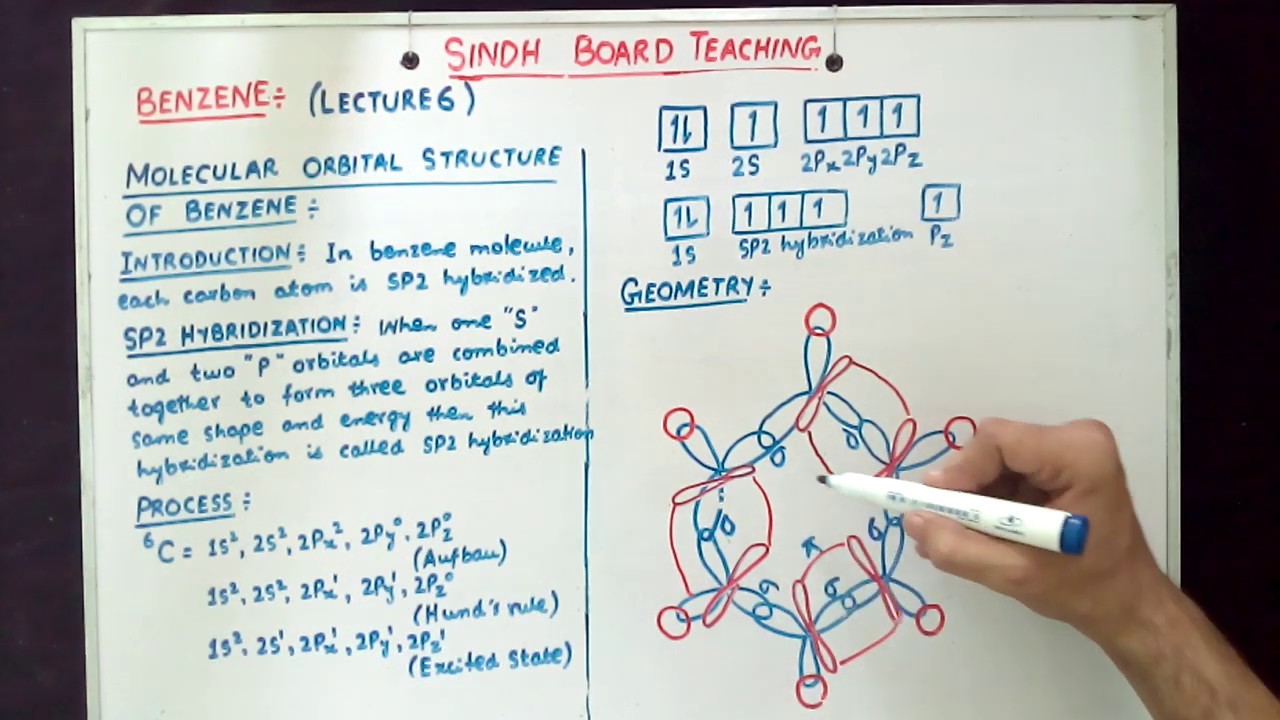 SINDH BOARD TEACHING
BENZENE:- (LECTURE 6)
MOLECULAR ORBITAL STRUCTURE
OF BENZENE:-
INTRODUCTION:- In benzene molecule,
each carbon atom is SP2 hybridized.
SP2 HYBRIDIZATION:- When one "S"
and two "P" orbitals are combined
together to form three orbitals of
same shape and energy then this
hybridization is called SP2 hybridization
PROCESS:-
⁶C = 1S², 2S², 2Px², 2Py⁰, 2Pz⁰
(Aufbau)
1S², 2S², 2Px¹, 2Py¹, 2Pz⁰
(Hund's rule)
1S², 2S¹, 2Px¹, 2Py¹, 2Pz¹
(Excited State)
1L 1 1 1 1
1S 2S 2Px 2Py 2Pz
1L 1 1 1 1
1S SP2 hybridization Pz
GEOMETRY:-
σ σ
σ σ
π
σ σ